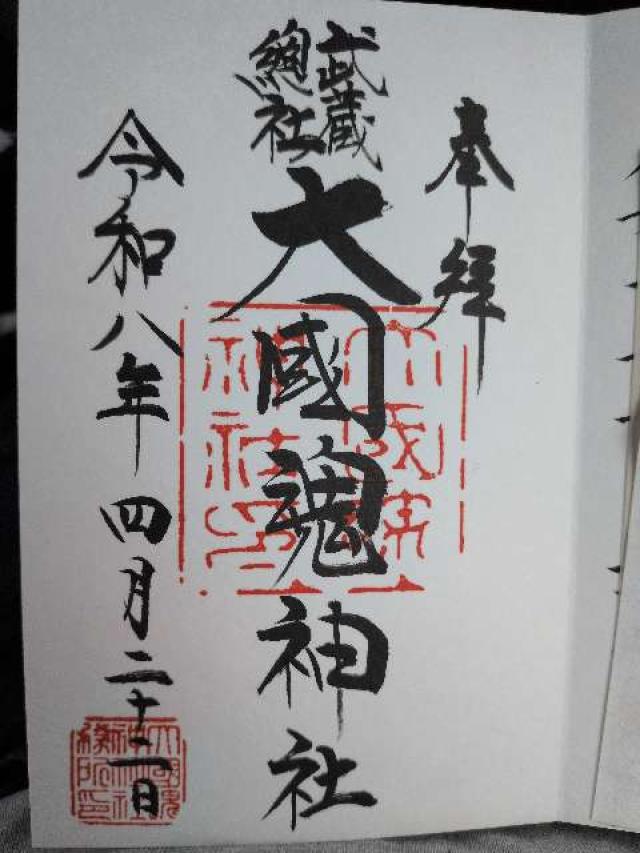 奉拝
武蔵
總社
大國魂神社
令和八年四月二十二日